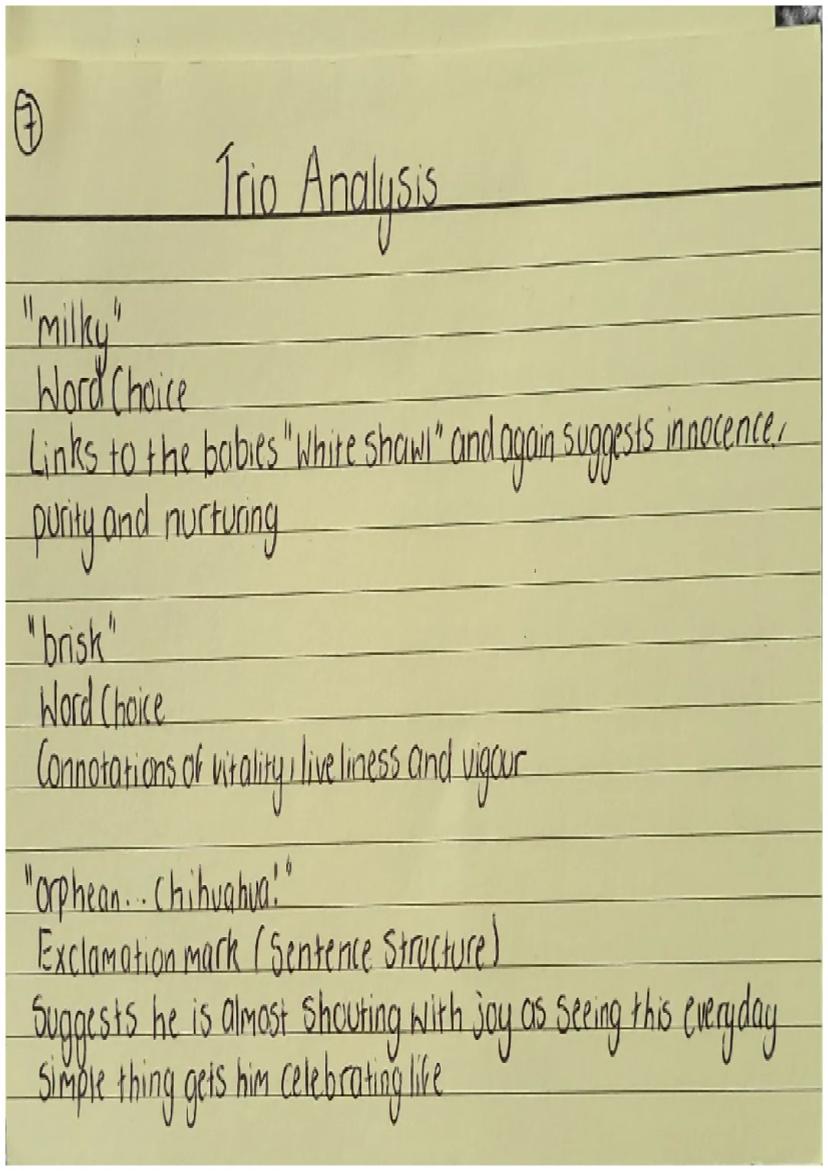 7
Trio Analysis
"milky"
Word Choice
Links to the babies "White shawl" and again suggests innocence,
purity and nurturing
"brisk"
Word Choice
Connotations of vitality, liveliness and vigour
"orphean... Chihuahua!"
Exclamation mark (Sentence Structure)
Suggests he is almost shouting with joy as seeing this everyday
simple thing gets him celebrating life